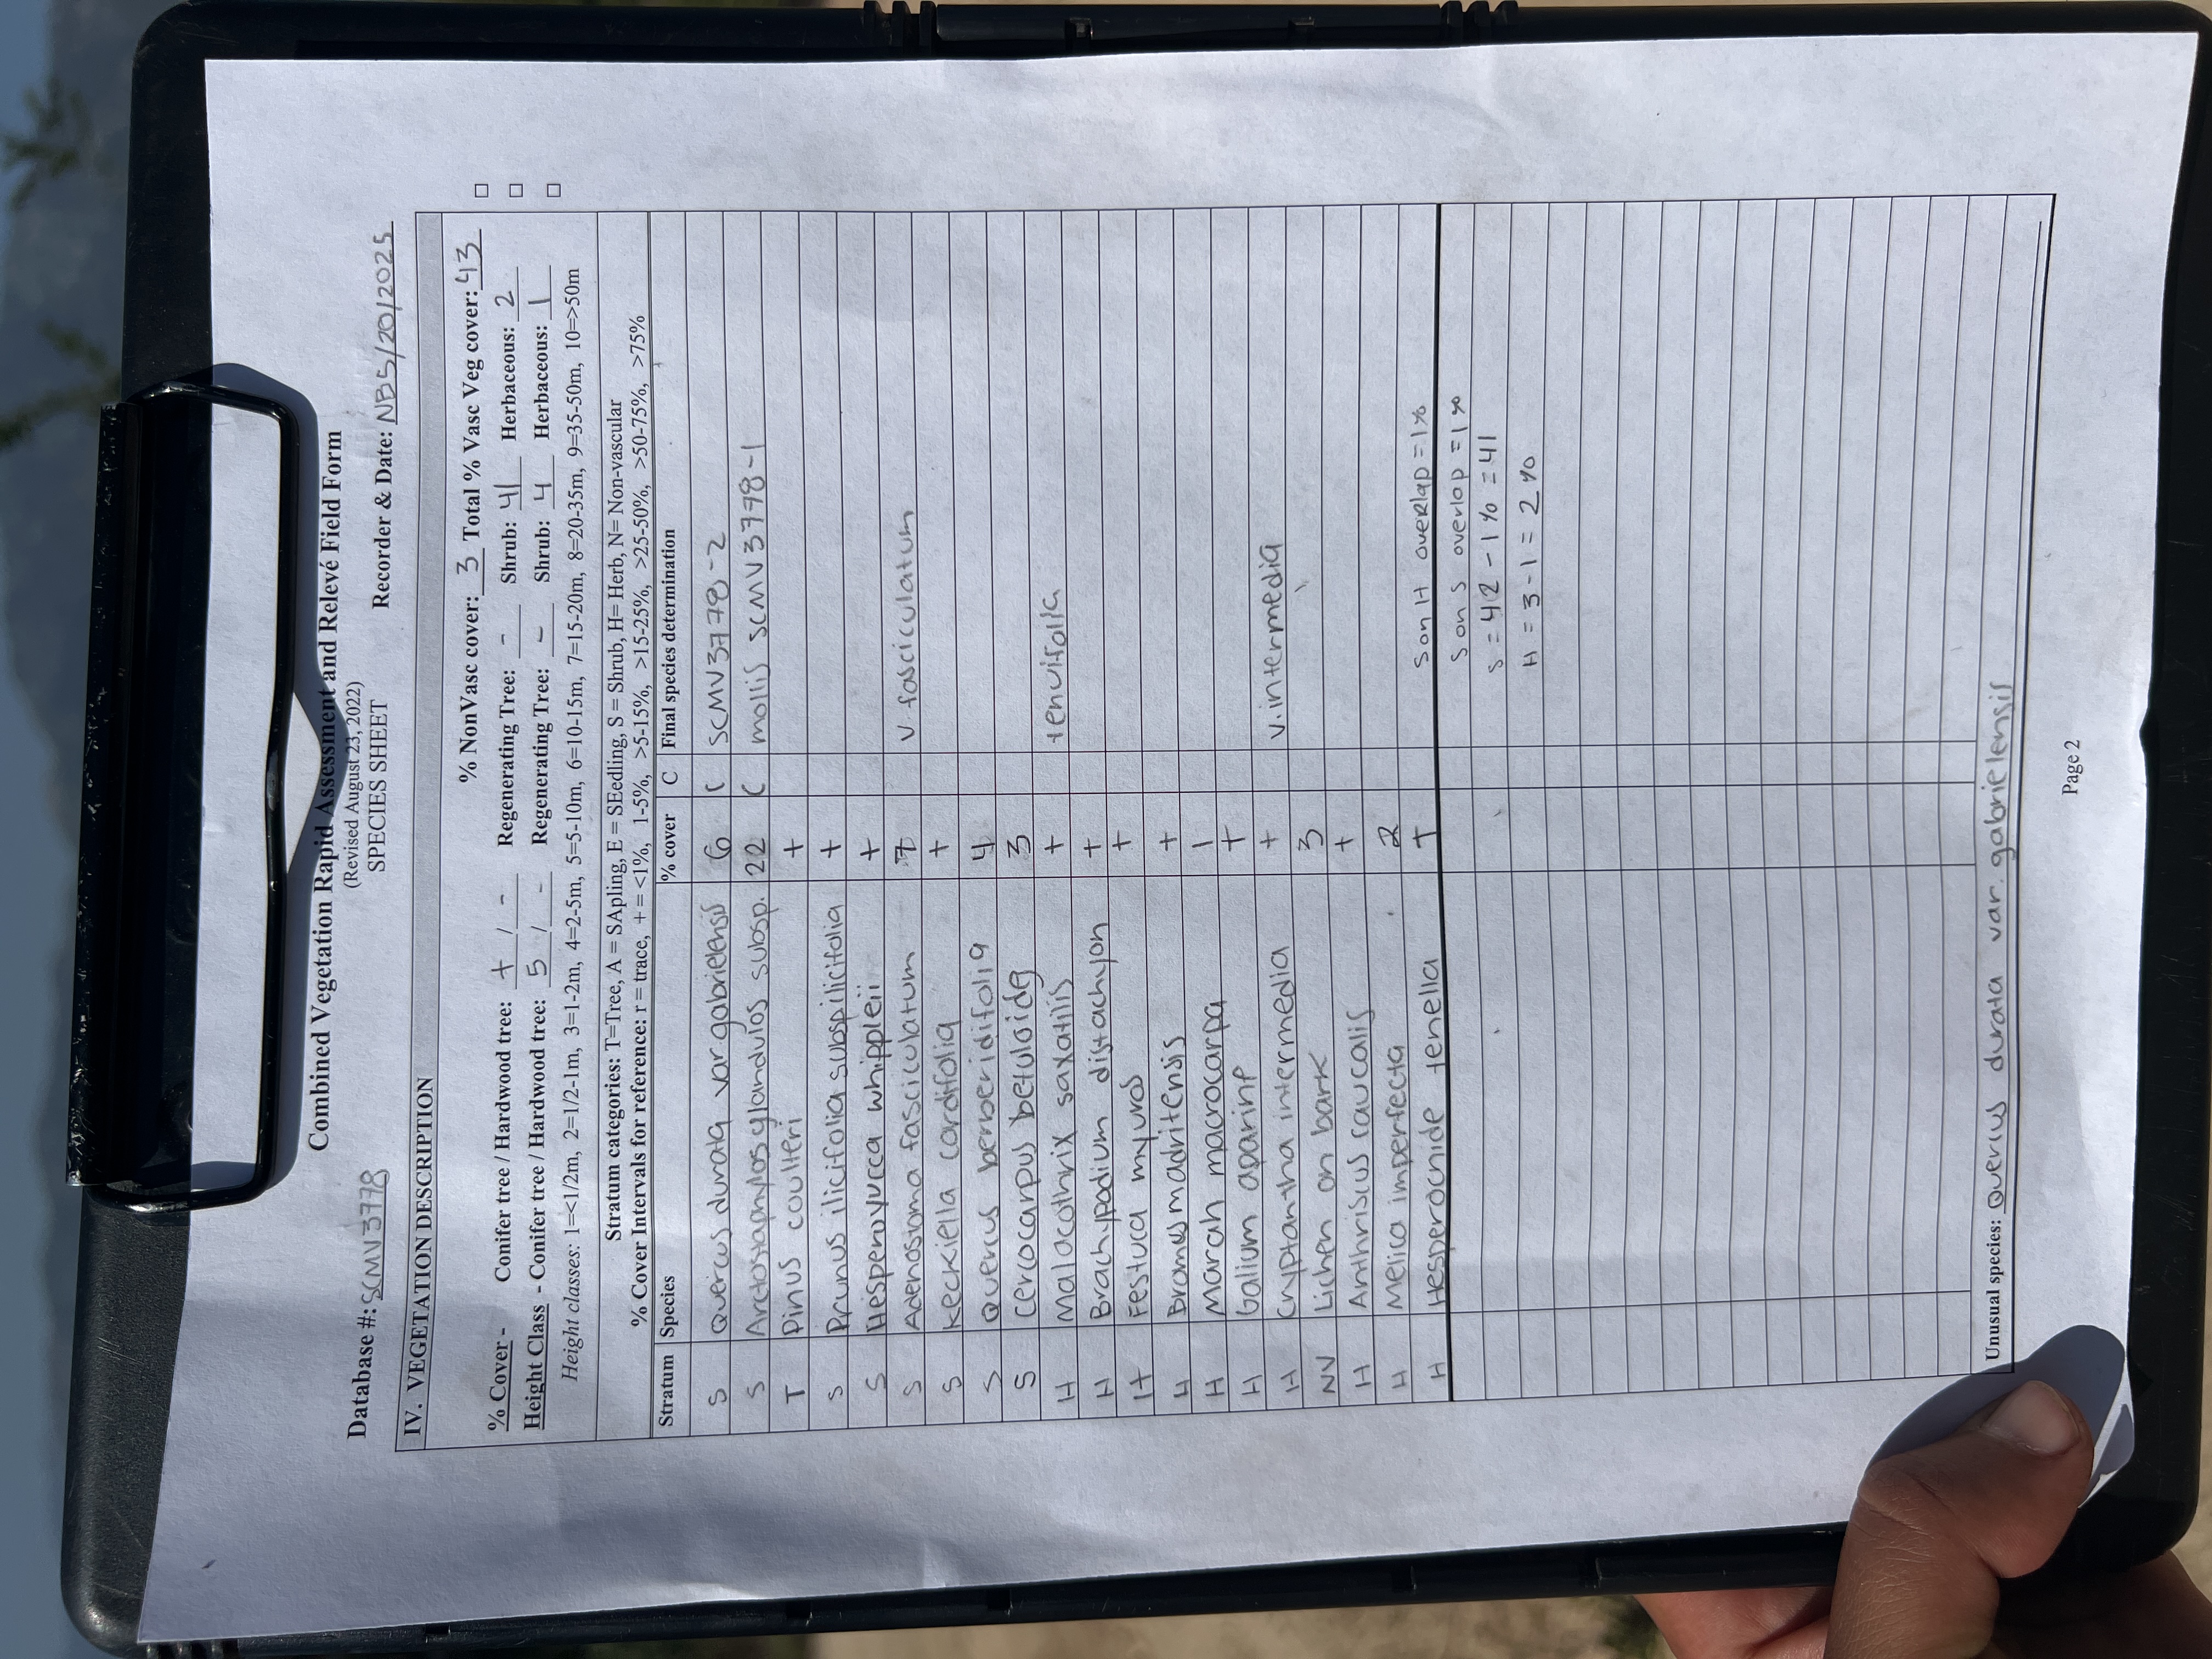 Combined Vegetation Rapid Assessment and Relevé Field Form
(Revised August 23, 2022)
SPECIES SHEET
Database #: SCMV3778 Recorder & Date: NB 5/20/2025
IV. VEGETATION DESCRIPTION
% NonVasc cover: 3 Total % Vasc Veg cover: 43 □
% Cover - Conifer tree / Hardwood tree: + / - Regenerating Tree: - Shrub: 41 Herbaceous: 2 □
Height Class - Conifer tree / Hardwood tree: 5 / - Regenerating Tree: - Shrub: 4 Herbaceous: 1 □
Height classes: 1=<1/2m, 2=1/2-1m, 3=1-2m, 4=2-5m, 5=5-10m, 6=10-15m, 7=15-20m, 8=20-35m, 9=35-50m, 10=>50m
Stratum categories: T=Tree, A = SApling, E = SEedling, S = Shrub, H= Herb, N= Non-vascular
% Cover Intervals for reference: r = trace, + = <1%, 1-5%, >5-15%, >15-25%, >25-50%, >50-75%, >75%
Stratum Species % cover C Final species determination
S Quercus durata var gabrielensis 6 C SCMV3778-2
S Arctostaphylos glandulos subsp. 22 C mollis SCMV3778-1
T Pinus coulteri +
S Prunus ilicifolia subsp ilicifolia +
S Hesperoyucca whipplei +
S Adenostoma fasciculatum 7 v fasciculatum
S Keckiella cordifolia +
S Quercus berberidifolia 4
S Cercocarpus betuloide 3
H Malacothrix saxatilis + tenuifolia
H Brachypodium distachyon +
H Festuca myuros +
H Bromus madritensis +
H Marah macrocarpa 1
H Galium aparine +
H Cryptantha intermedia + v. intermedia
NV Lichen on bark 3
H Anthriscus caucalis +
H Melica imperfecta 2
H Hesperocnide tenella + S on H overlap = 1%
S on S overlap = 1%
S = 42 - 1% = 41
H = 3 - 1 = 2%
Unusual species: Quercus durata var. gabrielensis
Page 2